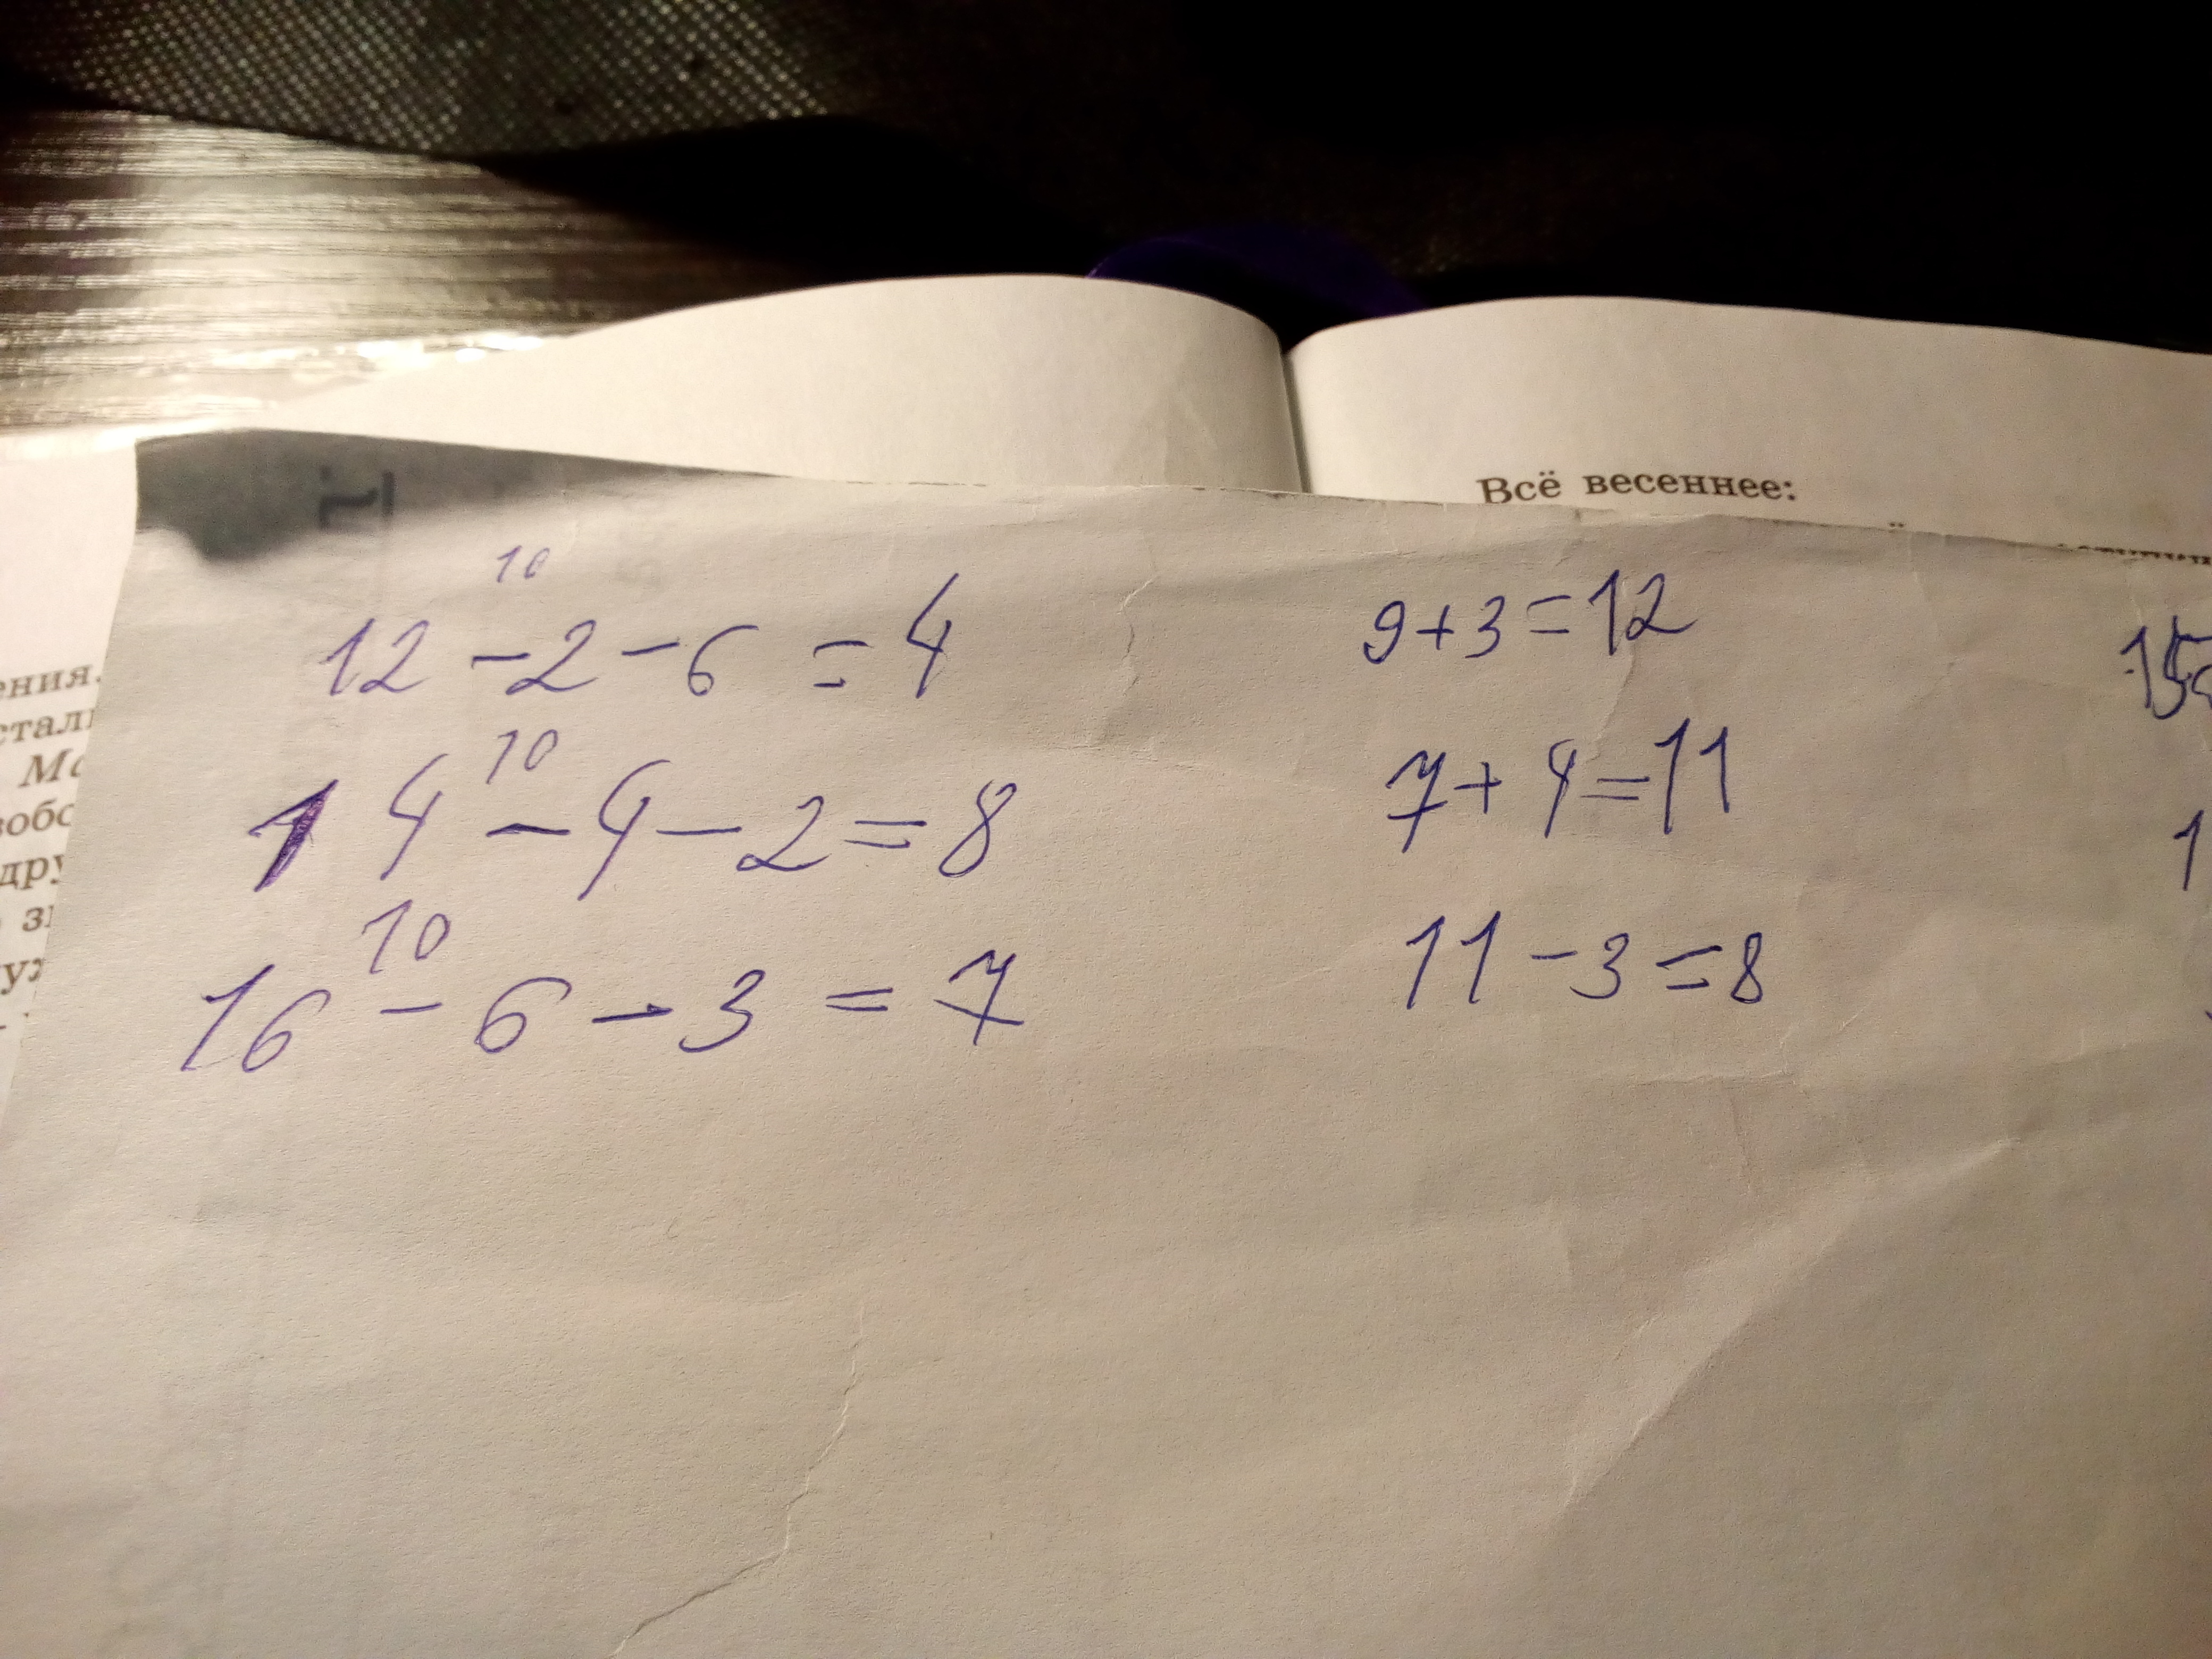 Всё весеннее:
ения.
Мо
дру
10
12 - 2 - 6 = 4
10
14 - 4 - 2 = 8
10
16 - 6 - 3 = 7
9 + 3 = 12
7 + 4 = 11
11 - 3 = 8
15
1